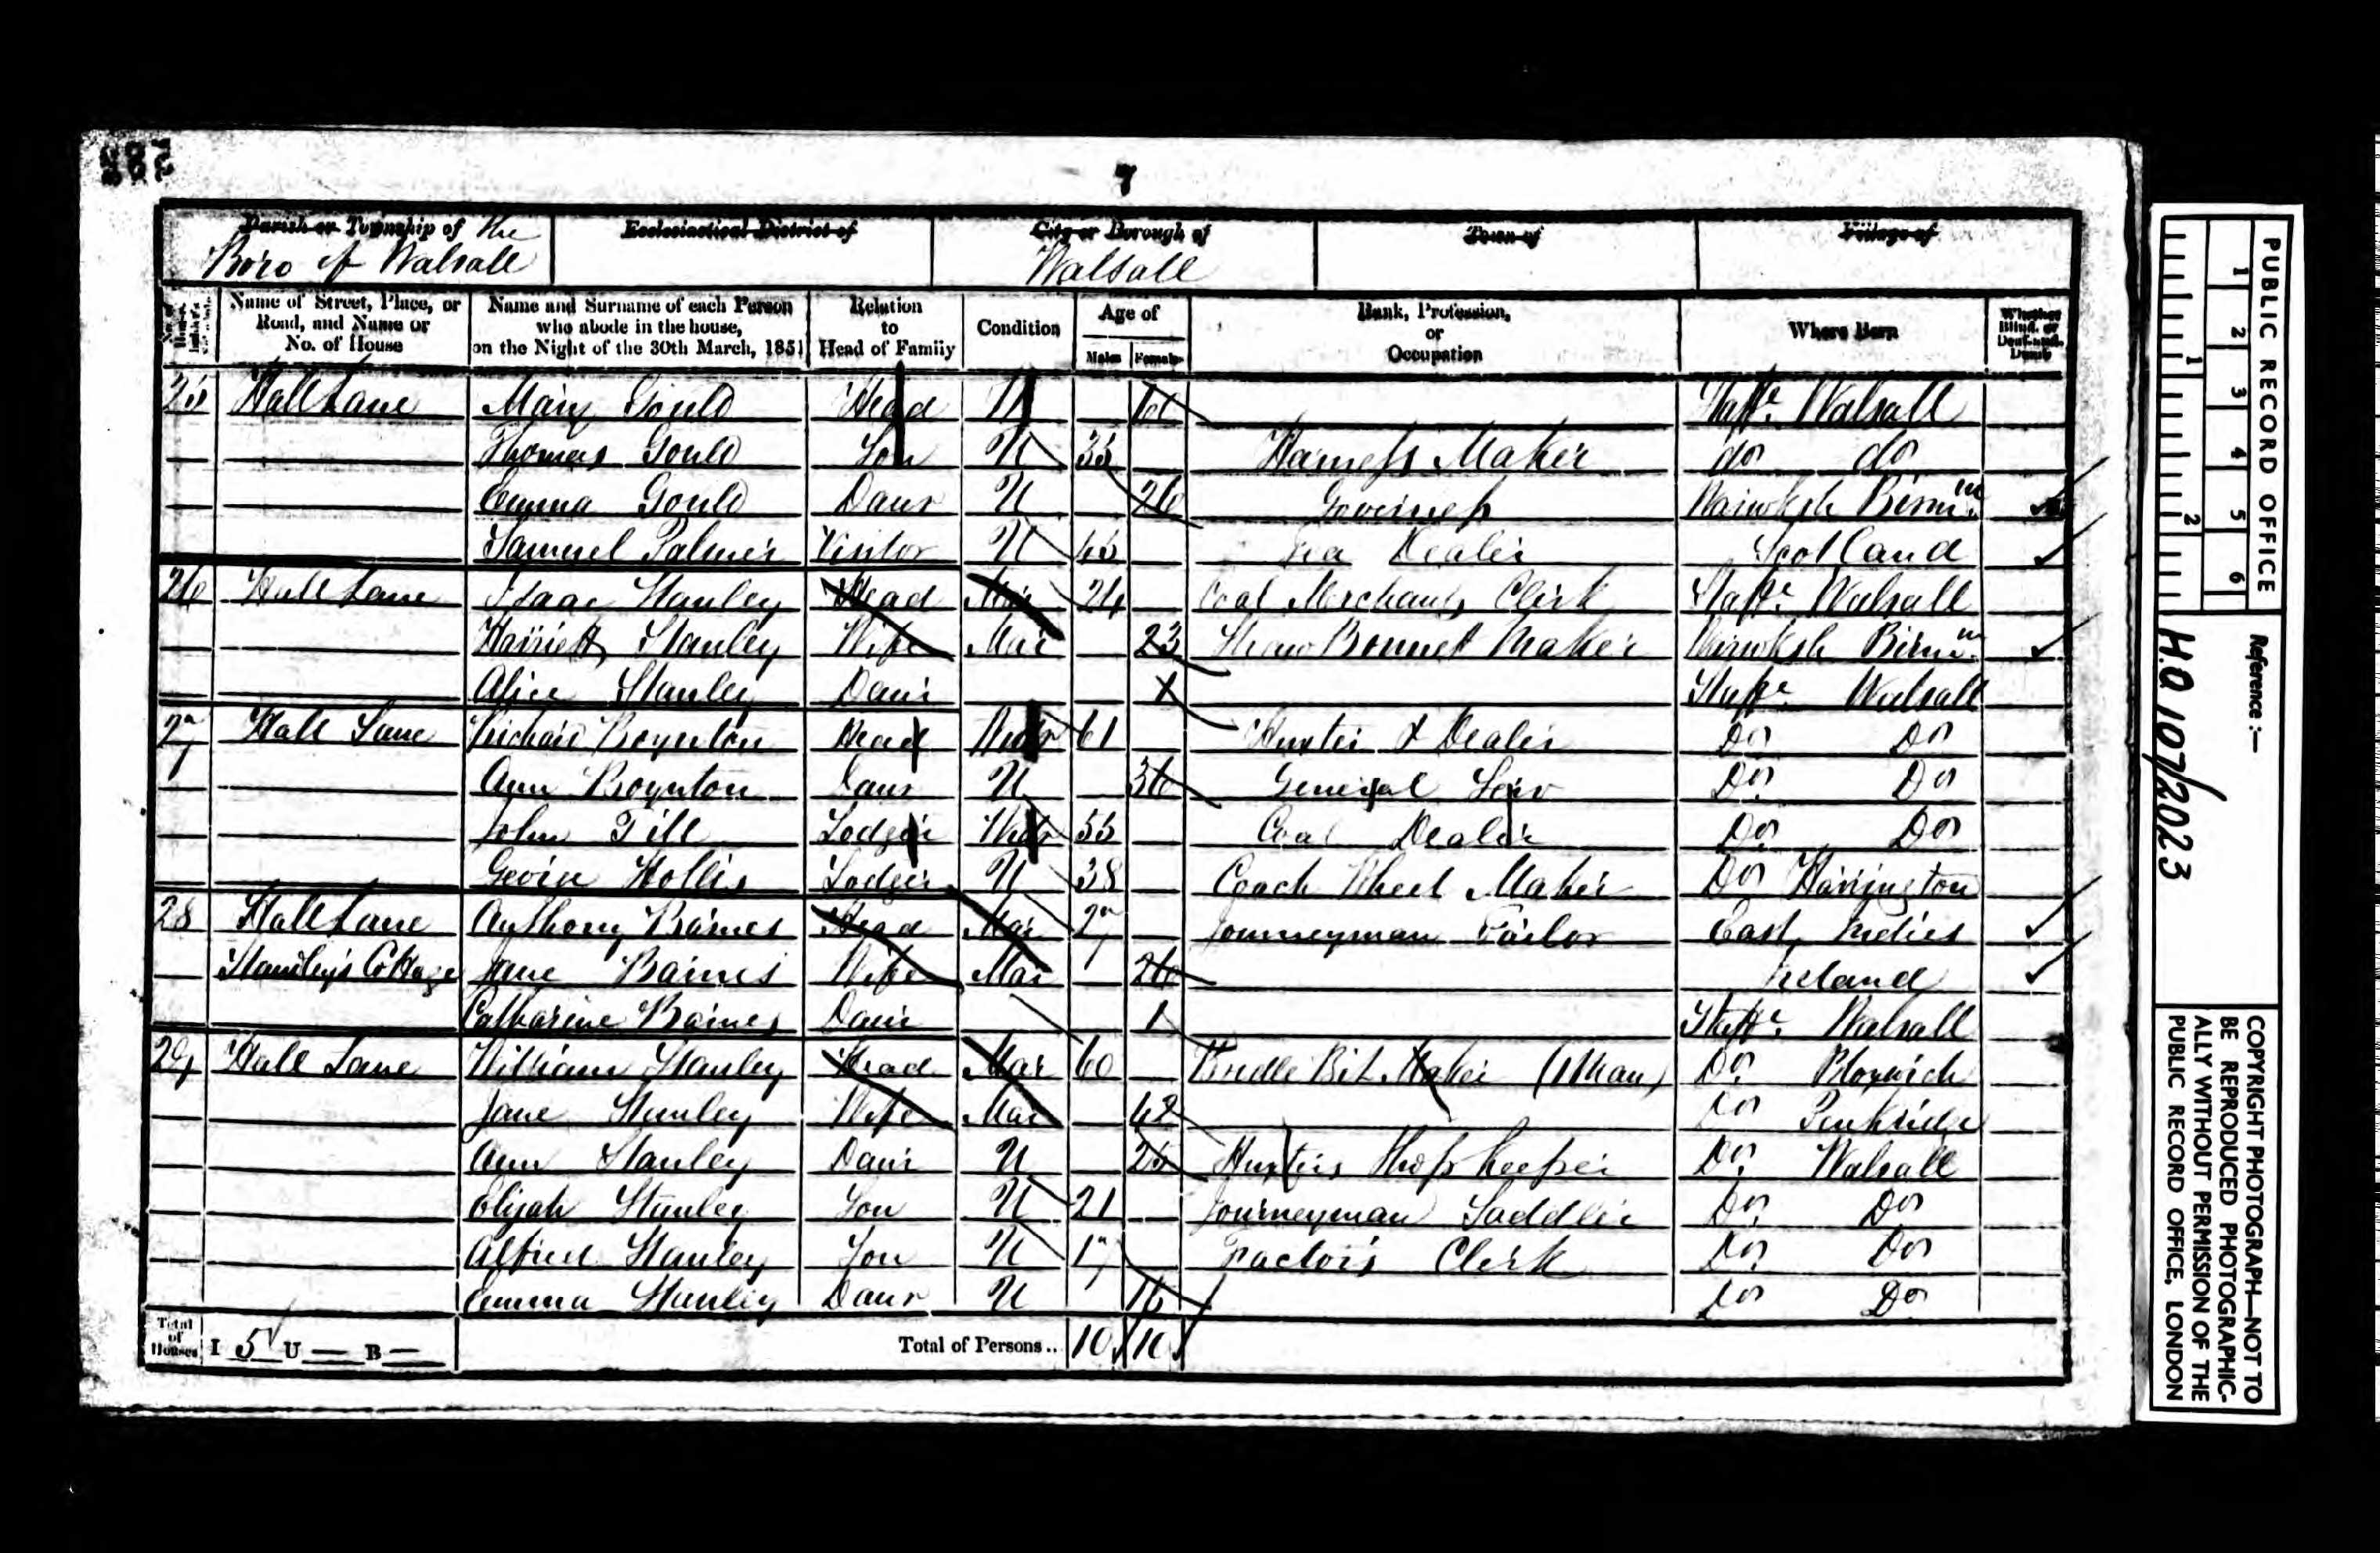 7
Parish or Township of the
Boro of Walsall
Ecclesiastical District of
City or Borough of
Walsall
Town of
Village of
Name of Street, Place, or Road, and Name or No. of House
Name and Surname of each Person who abode in the house, on the Night of the 30th March, 1851
Relation to Head of Family
Condition
Age of
Males Females
Rank, Profession, or Occupation
Where Born
Whether Blind, or Deaf-and-Dumb
25 Hall Lane Mary Gould Head W Staffe. Walsall
Thomas Gould Son U 33 Harness Maker do do
Emma Gould Daur U 26 Governess Warwksh Birmm.
Samuel Palmer Visitor U Tea Dealer Scotland
26 Hall Lane Isaac Stanley Head Mar 24 Coal Merchants Clerk Staffe. Walsall
Harriett Stanley Wife Mar 23 Straw Bonnet Maker Warwksh Birmm.
Alice Stanley Daur Staffe. Walsall
27 Hall Lane Richard Boynton Head Widr 61 Huxter & Dealer Do Do
Ann Boynton Daur U 36 General Serv Do. Do
John Till Lodger Widr 53 Coal Dealer Do. Do
Hollis Lodger U 38 Coach Wheel Maker Do
28 Hall Lane Anthony Baines Head Mar 27 Journeyman Tailor East Indies
Stanley's Cottage Jane Baines Wife Mar 26 Ireland
Catharine Baines Daur 1 Staffe. Walsall
29 Hall Lane William Stanley Head Mar 60 Bridle Bit Maker (1 Man) Do. Bloxwich
Jane Stanley Wife Mar Do
Ann Stanley Daur U 25 Huxters Shop Keeper Do. Walsall
Elijah Stanley Son U 21 Journeyman Saddler Do. Do
Alfred Stanley Son U 17 Factors Clerk Do. Do
Emma Stanley Daur U 16 Do Do
Total of Houses I 5 U — B —
Total of Persons.. 10 10
PUBLIC RECORD OFFICE
1 2 3 4 5 6
1 2
Reference:—
H.O 107/2023
COPYRIGHT PHOTOGRAPH—NOT TO
BE REPRODUCED PHOTOGRAPHIC-
ALLY WITHOUT PERMISSION OF THE
PUBLIC RECORD OFFICE, LONDON